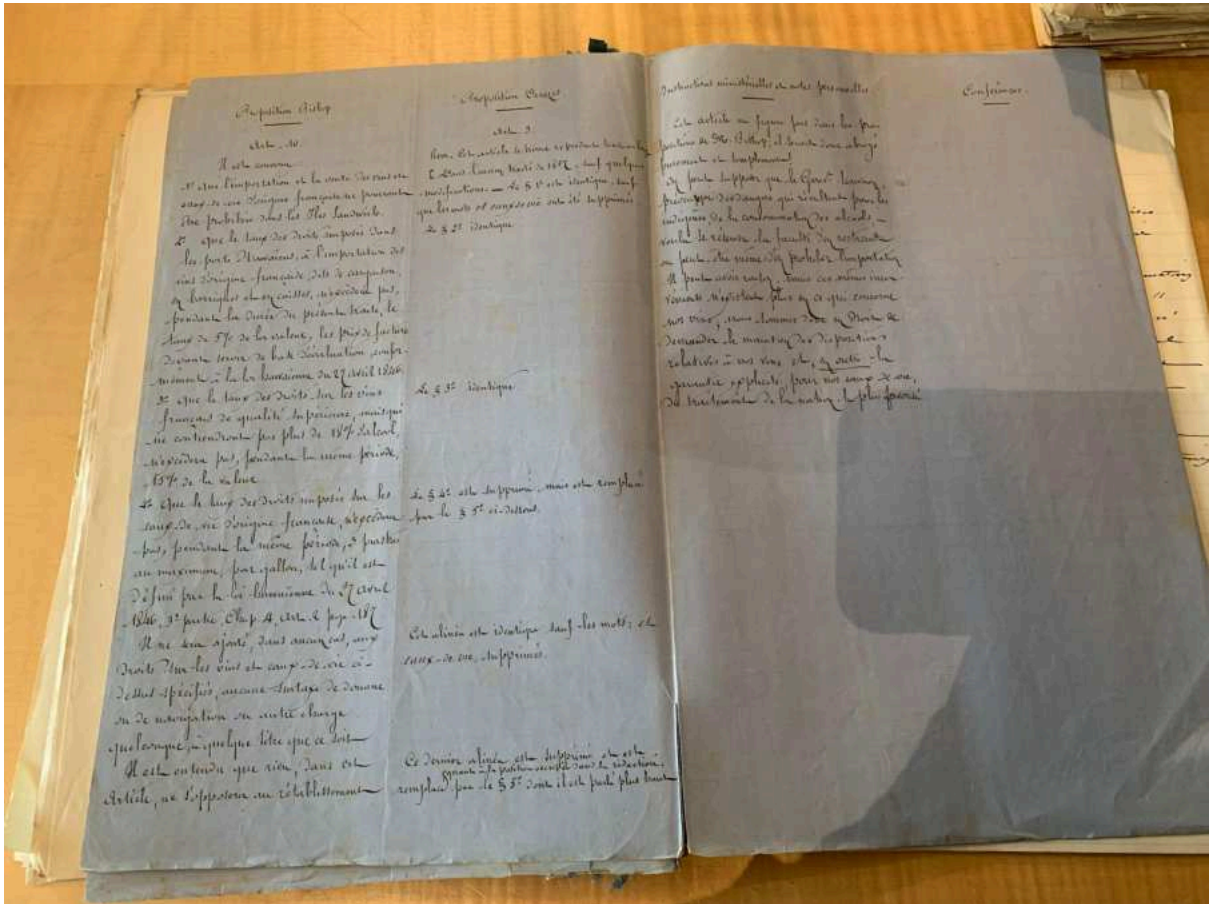 Proposition Bishop
Art. 10.
Il est convenu
1º que l'importation et la vente des vins et
eaux de vie d'origine française ne pourront
être prohibés dans les Iles Sandwich.
2º que le taux des droits imposés dans
les ports Hawaïens, à l'importation des
vins d'origine française, dits de cargaison,
en barriques et en caisses, n'excèdera pas,
pendant la durée du présent traité, le
taux de 5% de la valeur, les prix de facture
devant servir de base d'évaluation, confor-
mément à la loi hawaïenne du 27 avril 1846
3º que le taux des droits sur les vins
français de qualité supérieure, mais qui
ne contiendront pas plus de 18% d'alcool,
n'excèdera pas, pendant la même période,
15% de la valeur
4º que le taux des droits imposés sur les
eaux-de-vie d'origine française, n'excèdera
pas, pendant la même période, 3 piastres
au maximum, par gallon, tel qu'il est
défini par la loi hawaïenne du 27 avril
1846, 3º partie, Chap. 4, Art. 2 page 187
Il ne sera ajouté, dans aucun cas, aux
droits sur les vins et eaux-de-vie ci-
dessus spécifiés, aucune surtaxe de douane
ou de navigation ou autre charge
quelconque, à quelque titre que ce soit
Il est entendu que rien, dans cet
Article, ne s'opposera au rétablissement
Proposition
Art. 9.
Cet article
traité de 1857, sauf quelques
modifications. — Le § 1º est identique, sauf
que les mots et eaux de vie ont été supprimés
Le § 2º identique
Le § 3º identique
Le § 4º est supprimé, mais est remplacé
par le § 5º ci-dessous.
Cet alinéa est identique sauf les mots: et
eaux-de-vie, supprimés.
Ce dernier alinéa est supprimé et est
dans la rédaction,
remplacé par le § 5º dont il est parlé plus haut
Instructions ministérielles et notes personnelles
Cet article ne figure pas dans les pro-
positions de Mr. Bishop, il serait donc abrogé
purement et simplement
On peut supposer que le Gouvt hawaïen,
préoccupé des dangers qui résultent pour les
indigènes de la consommation des alcools,
voulu se réserver la faculté d'en restreindre
ou peut-être même d'en prohiber l'importation
Il peut avoir raison, mais ces mêmes incon
vénients n'existent plus en ce qui concerne
nos vins, nous sommes donc en droit de
demander le maintien des dispositions
relatives à nos vins et, en outre, la
garantie explicite, pour nos eaux de vie,
du traitement de la nation la plus favorisée
Conférences.